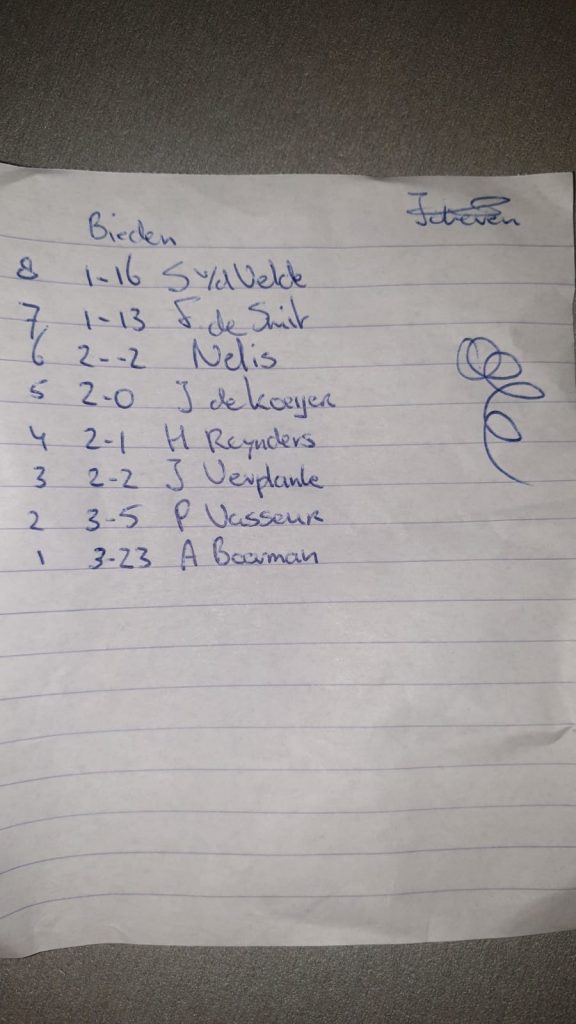 Bieden
8 1-16 S v/d Velde
7 1-13 F de Smit
6 2--2 Nelis
5 2-0 J de Koeyer
4 2-1 H Reynders
3 2-2 J Verplanke
2 3-5 P Vasseur
1 3-23 A Boorman